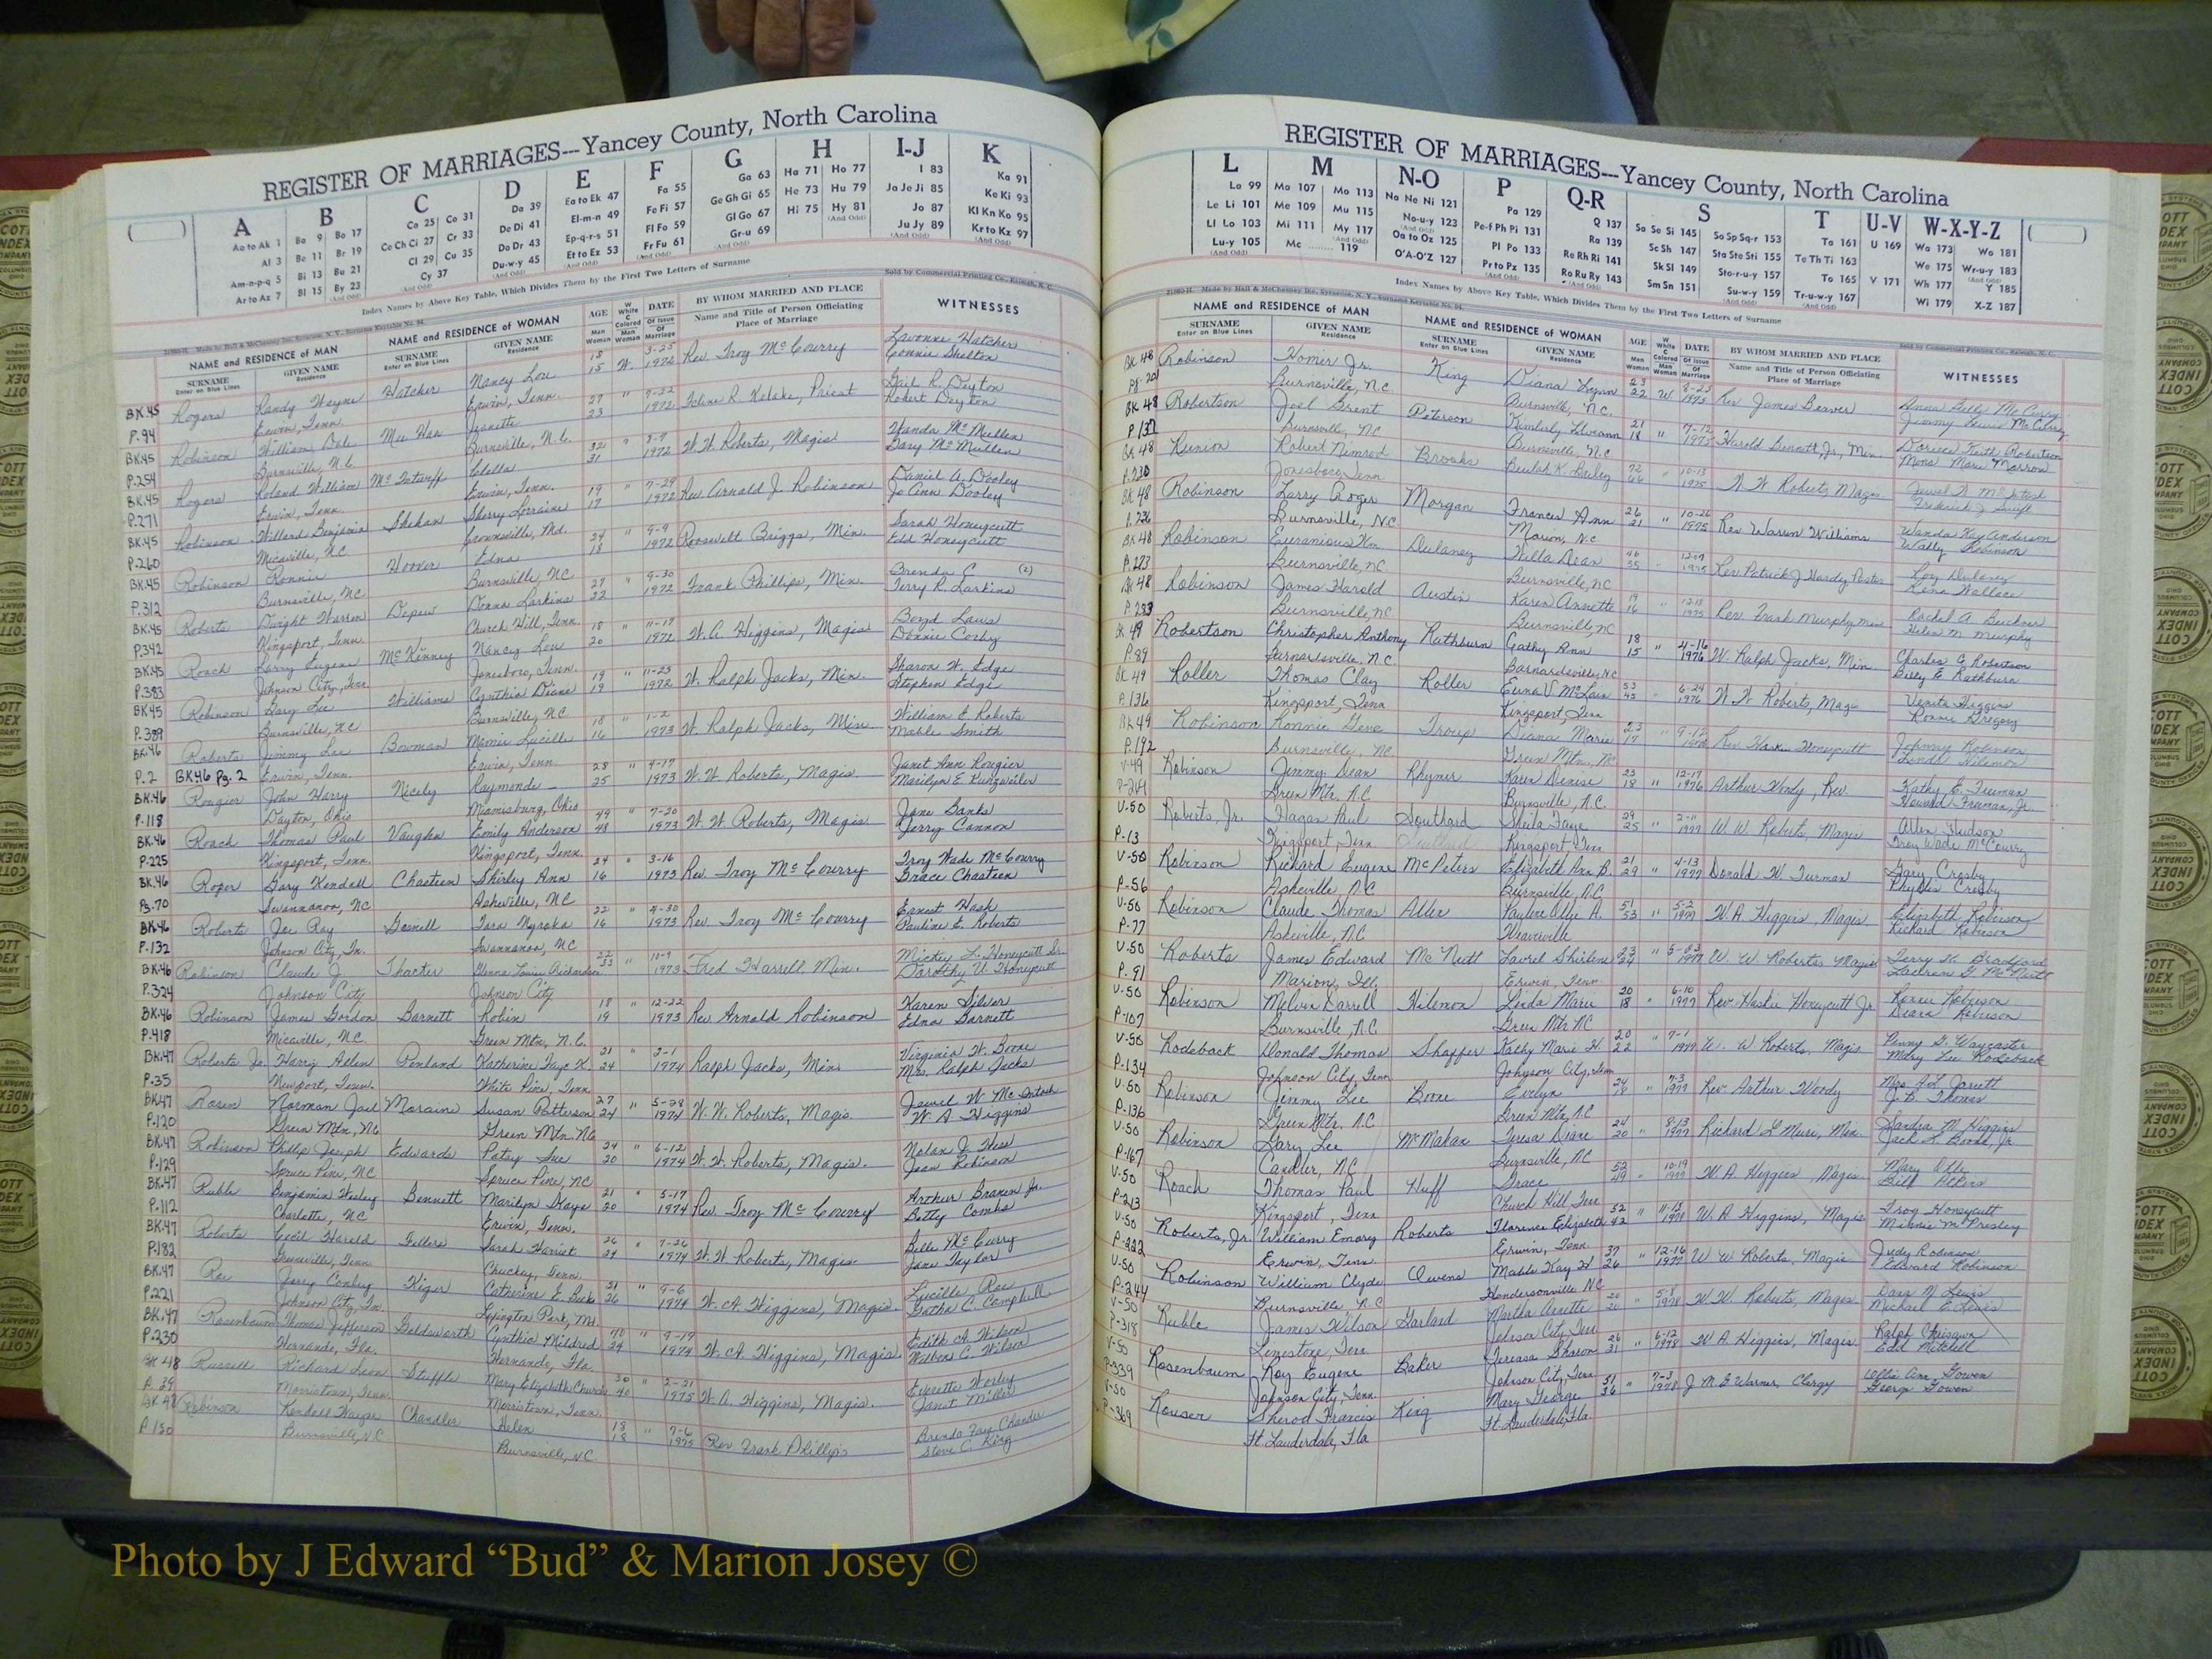 REGISTER OF MARRIAGES---Yancey County, North Carolina
A B C D E F G H I-J K
Aa to Ak 1 Ba 9 Bo 17 Ca 25 Co 31 Da 39 Ea to Ek 47 Fa 55 Ga 63 Ha 71 Ho 77 I 83 Ka 91
Al 3 Be 11 Br 19 Ce Ch Ci 27 Cr 33 De Di 41 El-m-n 49 Fe Fi 57 Ge Gh Gi 65 He 73 Hu 79 Ja Je Ji 85 Ke Ki 93
Am-n-p-q 5 Bi 13 Bu 21 Cl 29 Cu 35 Do Dr 43 Ep-q-r-s 51 Fl Fo 59 Gl Go 67 Hi 75 Hy 81 Jo 87 Kl Kn Ko 95
Ar to Az 7 Bl 15 By 23 Cy 37 Du-w-y 45 Et to Ez 53 Fr Fu 61 Gr-u 69 Ju Jy 89 Kr to Kz 97
Index Names by Above Key Table, Which Divides Them by the First Two Letters of Surname
Sold by Commercial Printing Co., Raleigh, N. C.
NAME and RESIDENCE of MAN NAME and RESIDENCE OF WOMAN AGE W White C Colored DATE BY WHOM MARRIED AND PLACE WITNESSES
SURNAME Enter on Blue Lines GIVEN NAME Residence SURNAME Enter on Blue Lines GIVEN NAME Residence Man Woman Man Woman Of Issue Of Marriage Name and Title of Person Officiating Place of Marriage
BK.45 Rogers Randy Wayne Hatcher Nancy Lou 18 W. 3-25 Rev. Troy McCourry Lavonne Hatcher
P.94 Erwin, Tenn. Erwin, Tenn. 15 1972 Connie Shelton
BK45 Robinson William Dale Mee Han Jeanette 27 " 7-22 Priest Gail R. Deyton
P.254 Burnsville, N.C. Burnsville, N.C. 23 1972 Robert Deyton
BK.45 Rogers Roland William McInturff 32 " 8-7 W.W. Roberts, Magis Wanda McMullen
P.271 Erwin, Tenn. Erwin, Tenn. 31 1972 Gary McMullen
BK.45 Robinson Willard Benjamin Shehan Sherry Lorraine 19 " 7-29 Rev. Arnald J. Robinson Daniel A. Dooley
P.260 Micaville, N.C. Md. 17 1972 Jo Ann Dooley
BK.45 Robinson Ronnie Hoover Edna 24 " 9-9 Roosevelt Briggs, Min. Sarah Honeycutt
P.312 Burnsville, NC Burnsville, NC 18 1972 Edd Honeycutt
BK.45 Roberts Dwight Warren Depew Donna Larkins 27 " 9-30 Frank Phillips, Min. Brenda C (2)
P.342 Kingsport, Tenn. Church Hill, Tenn. 22 1972 Terry R. Larkins
BK.45 Roach Larry Eugene McKinney Nancy Lou 18 " 11-17 W.A. Higgins, Magis Boyd Laws
P.383 Johnson City, Tenn. Jonesboro, Tenn. 20 1972 Donnie Corby
BK45 Robinson Gary Lee Williams Cynthia Diane 19 " 11-25 W. Ralph Jacks, Min. Sharon W. Edge
P.389 Burnsville, NC Burnsville, NC 19 1972 Stephen Edge
BK.46 Roberts Jimmy Lee Bowman Mamie Lucille 18 " 1-2 W. Ralph Jacks, Min. William E Roberts
P.2 BK46 Pg.2 Erwin, Tenn. Erwin, Tenn. 16 1973 Mable Smith
BK.46 Rougier John Harry Nicely Raymonde 28 " 4-17 W.W. Roberts, Magis. Janet Ann Rougier
P.118 Dayton, Ohio Miamisburg, Ohio 25 1973 Marilyn E Kunzweiler
BK.46 Roach Thomas Paul Vaughn Emily Anderson 49 " 7-20 W.W. Roberts, Magis Jane Banks
P.225 Kingsport, Tenn. Kingsport, Tenn. 48 1973 Jerry Cannon
BK.46 Roper Gary Kendall Chasteen Shirley Ann 24 " 3-16 Rev. Troy McCourry Troy Wade McCourry
Pg.70 Swannanoa, NC Asheville, NC 16 1973 Grace Chasteen
BK46 Roberts Joe Ray Gosnell Tara Nyroka 22 " 4-30 Rev. Troy McCourry Earnest Hash
P.132 Johnson City, Tn. Swannanoa, NC 16 1973 Pauline E. Roberts
BK.46 Robinson Claude J Thacter 22 33 " 10-9 Fred Harrell, Min. Mickey L. Honeycutt Sr.
P.324 Johnson City Johnson City 1973 Dorothy U. Honeycutt
BK.46 Robinson James Gordon Barnett Robin 18 " 12-22 Rev. Arnold Robinson Karen Silver
P.418 Micaville, N.C. Green Mtn, N.C. 19 1973 Edna Barnett
BK.47 Roberts Jr. Harry Allen Penland Katherine Faye K. 21 " 2-1 Ralph Jacks, Min. Virginia W. Boone
P.35 Newport, Tenn. White Pine, Tenn 24 1974 Mrs. Ralph Jacks
BK47 Rosen Norman Joel Moraine Susan Patterson 27 " 5-28 W.W. Roberts, Magis. Jewel W. McIntosh
P.120 Green Mtn, NC Green Mtn. NC 24 1974 W A Higgins
BK.47 Robinson Phillip Joseph Edwards Patsy Sue 24 " 6-12 W.W. Roberts, Magis. Nolan J. Hise
P.129 Spruce Pine, NC Spruce Pine, NC 20 1974 Jean Robinson
BK.47 Ruble Benjamin Wesley Bennett Marilyn Kaye 21 " 5-17 Rev. Troy McCourry Arthur Braren Jr.
P.112 Charlotte, NC Erwin, Tenn. 20 1974 Betty Combs
BK.47 Roberts Cecil Harold Fillers Sarah Harriet 26 " 7-26 W.W. Roberts, Magis. Bille McCurry
P.182 Greeneville, Tenn. Chuckey, Tenn. 24 1974 Jane Taylor
BK.47 Roe Jerry Conley Kiger Catherine E. Beck 21 " 9-6 W.A. Higgins, Magis. Lucille Roe
P.221 Johnson City, Tn. Lexington Park, Md. 26 1974 Gatha C. Campbell
BK.47 Rosenbaum Thomas Jefferson Goldsworth Cynthia Mildred 70 " 9-17 W.A. Higgins, Magis Edith A. Wilson
P.230 Hernando, Fla. Hernando, Fla. 24 1974 Wilbens C. Wilson
BK 48 Russell Richard Leon Stuffle Mary Elizabeth Church 30 " 2-21 W.A. Higgins, Magis. Everette Worley
P. 39 Morristown, Tenn. Morristown, Tenn. 40 1975 Janet Miller
BK 48 Robinson Kendall Wayne Chandler Helen 18 " 7-6 Rev Frank Phillips Brenda Faye Chandler
P 130 Burnsville, NC Burnsville, NC 18 1975 Steve C. King
REGISTER OF MARRIAGES---Yancey County, North Carolina
L M N-O P Q-R S T U-V W-X-Y-Z
La 99 Ma 107 Mo 113 Na Ne Ni 121 Pa 129 Q 137 Sa Se Si 145 So Sp Sq-r 153 Ta 161 U 169 Wa 173 Wo 181
Le Li 101 Me 109 Mu 115 No-u-y 123 Pe-f Ph Pi 131 Ra 139 Sc Sh 147 Sta Ste Sti 155 Te Th Ti 163 We 175 Wr-u-y 183
Ll Lo 103 Mi 111 My 117 Oa to Oz 125 Pl Po 133 Re Rh Ri 141 Sk Sl 149 Sto-r-u-y 157 To 165 V 171 Wh 177 Y 185
Lu-y 105 Mc 119 O'A-O'Z 127 Pr to Pz 135 Ro Ru Ry 143 Sm Sn 151 Su-w-y 159 Tr-u-w-y 167 Wi 179 X-Z 187
Index Names by Above Key Table, Which Divides Them by the First Two Letters of Surname
NAME and RESIDENCE OF MAN NAME and RESIDENCE OF WOMAN AGE W White C Colored DATE BY WHOM MARRIED AND PLACE WITNESSES
SURNAME Enter on Blue Lines GIVEN NAME Residence SURNAME Enter on Blue Lines GIVEN NAME Residence Man Woman Man Woman Of Issue Of Marriage Name and Title of Person Officiating Place of Marriage
BK 48 Robinson Homer Jr. King Diana Lynn 23 W 8-23 Rev James Beaver Anna Belle McCurry
Pg. 20 Burnsville, N.C. Burnsville, N.C. 22 1975 Jimmy Lewis McCurry
BK 48 Robertson Joel Brent Peterson Kimberly 21 " 7-12 Harold Bennett Jr, Min. Dorcus Faith Robertson
P 137 Burnsville, NC Burnsville, N.C 18 1975 Mona Marie Morrow
BK 48 Runion Robert Nimrod Brooks Beulah K. Bailey 72 " 10-13 W W Roberts, Magis Jewel W McIntosh
P.230 Jonesboro, Tenn 66 1975 Frederick J Swift
BK 48 Robinson Larry Roger Morgan Frances Ann 26 " 10-26 Rev Warren Williams Wanda Kay Anderson
P.236 Burnsville, N.C. Marion, N.C 21 1975 Wally Robinson
BK 48 Robinson Dulaney Willa Dean 46 " 12-07 Rev Patrick J Hardy, Pastor Roy Dulaney
P.273 Burnsville, NC. Burnsville, NC 35 1975 Rena Wallace
BK 48 Robinson James Harold Austin Karen Annette 19 " 12-18 Rev Frank Murphy, Min Rachel A. Buckner
P.283 Burnsville, NC Burnsville, NC 16 1975 Helen M. Murphy
BK 49 Robertson Christopher Anthony Rathburn Cathy Ann 18 " 4-16 W. Ralph Jacks, Min. Charles G. Robertson
P.89 Barnardsville, N.C. Barnardsville, NC 15 1976 Billy E Rathburn
BK 49 Roller Thomas Clay Roller Euna V McLain 53 " 6-24 W.W Roberts, Magis Venita Higgins
P.136 Kingsport, Tenn Kingsport, Tenn 45 1976 Ronnie Gregory
BK 49 Robinson Ronnie Gene Troup Diana Marie 23 " 9-12 Rev. Haskie Honeycutt Johnny Robinson
P.192 Burnsville, NC. Green Mtn., NC 17 Linda Hilemon
V-49 Robinson Jimmy Dean Rhymer Karen Denise 23 " 12-17 Arthur Woody, Rev. Kathy E. Freeman
P-264 Green Mtn. N.C. Burnsville, N.C. 18 1976 Howard Freeman, Jr.
V-50 Roberts, Jr. Hagas Paul Southard Sheila Faye 29 " 2-11 W W Roberts, Magis Allen Hudson
P-13 Kingsport, Tenn Kingsport, Tenn 25 1977 Troy Wade McCourry
V-50 Robinson Richard Eugene McPeters Elizabeth Ann B. 21 " 4-13 Donald W. Turman Gary Crosby
P-56 Asheville, N.C Burnsville, N.C 29 1977 Phyllis Crosby
V-50 Robinson Claude Thomas Allen Pauline Ollie A. 51 " 5-2 W.A. Higgins, Magis Elizabeth Robinson
P-77 Asheville, N.C Weaverville 53 1977 Richard Robinson
V-50 Roberts James Edward McNutt Laurel Shirlene 23 " W. W. Roberts, Magis Terry H. Bradford
P. 91 Marion, Ill. Erwin, Tenn 24 1977 McNutt
V-50 Robinson Melvin Darrell Hilemon Linda Marie 20 " 6-10 Rev. Haskie Honeycutt Jr Ronnie Robinson
P-107 Burnsville, N.C Green Mtn NC 18 1977 Diana Robinson
V-50 Rodeback Donald Thomas Shaffer Kathy Marie H 20 " 7-1 W. W Roberts, Magis Penny G. Waycaster
P-134 Johnson City, Tenn Johnson City, Tenn 22 1977 Mary Lee Rodeback
V-50 Robinson Jimmy Lee Boone Evelyn 24 " 7-3 Rev. Arthur Woody Mrs A.L. Jarrett
P-136 Green Mtn, N.C Green Mtn, N.C 18 1977 J.B. Thomas
V-50 Robinson Gary Lee McMahan Teresa Diane 24 " 8-13 Richard L Muri, Min. Sandra M. Higgins
P-167 Candler, N.C Burnsville, NC 20 1977 Jack L. Boone, Jr
V-50 Roach Thomas Paul Huff Grace 52 " 10-19 W.A. Higgins Magis Mary Allen
P-213 Kingsport, Tenn Church Hill, Tenn 49 1977 Bill Akers
V-50 Roberts, Jr. William Emory Roberts Florence Elizabeth 52 " 11-15 W A Higgins, Magis Troy Honeycutt
P-222 Erwin, Tenn. Erwin, Tenn 42 Minnie M Presley
V-50 Robinson William Clyde Owens Mable Kay H 37 " 12-16 W W Roberts, Magis Judy Robinson
P-244 Burnsville, N.C Hendersonville NC 26 1977 Edward Robinson
V-50 Ruble James Wilson Garland Martha Annette 20 " 5-8 W.W. Roberts, Magis. Dara N Lewis
P-318 Limestone, Tenn Johnson City, Tenn 20 1978 Michael E. Lewis
V-50 Rosenbaum Roy Eugene Baker Tereasa Sharon 26 " 6-12 W A. Higgins, Magis. Ralph Chrisawn
P-339 Johnson City, Tenn. Johnson City, Tenn 31 1978 Edd Mitchell
V-50 Rouser Sherod Francis King Mary George 51 " 7-3 J M B Warner, Clergy Lellie Ann Gowen
P-369 Ft. Lauderdale, Fla Ft. Lauderdale, Fla. 36 1978 George Gowen
Photo by J Edward “Bud” & Marion Josey ©